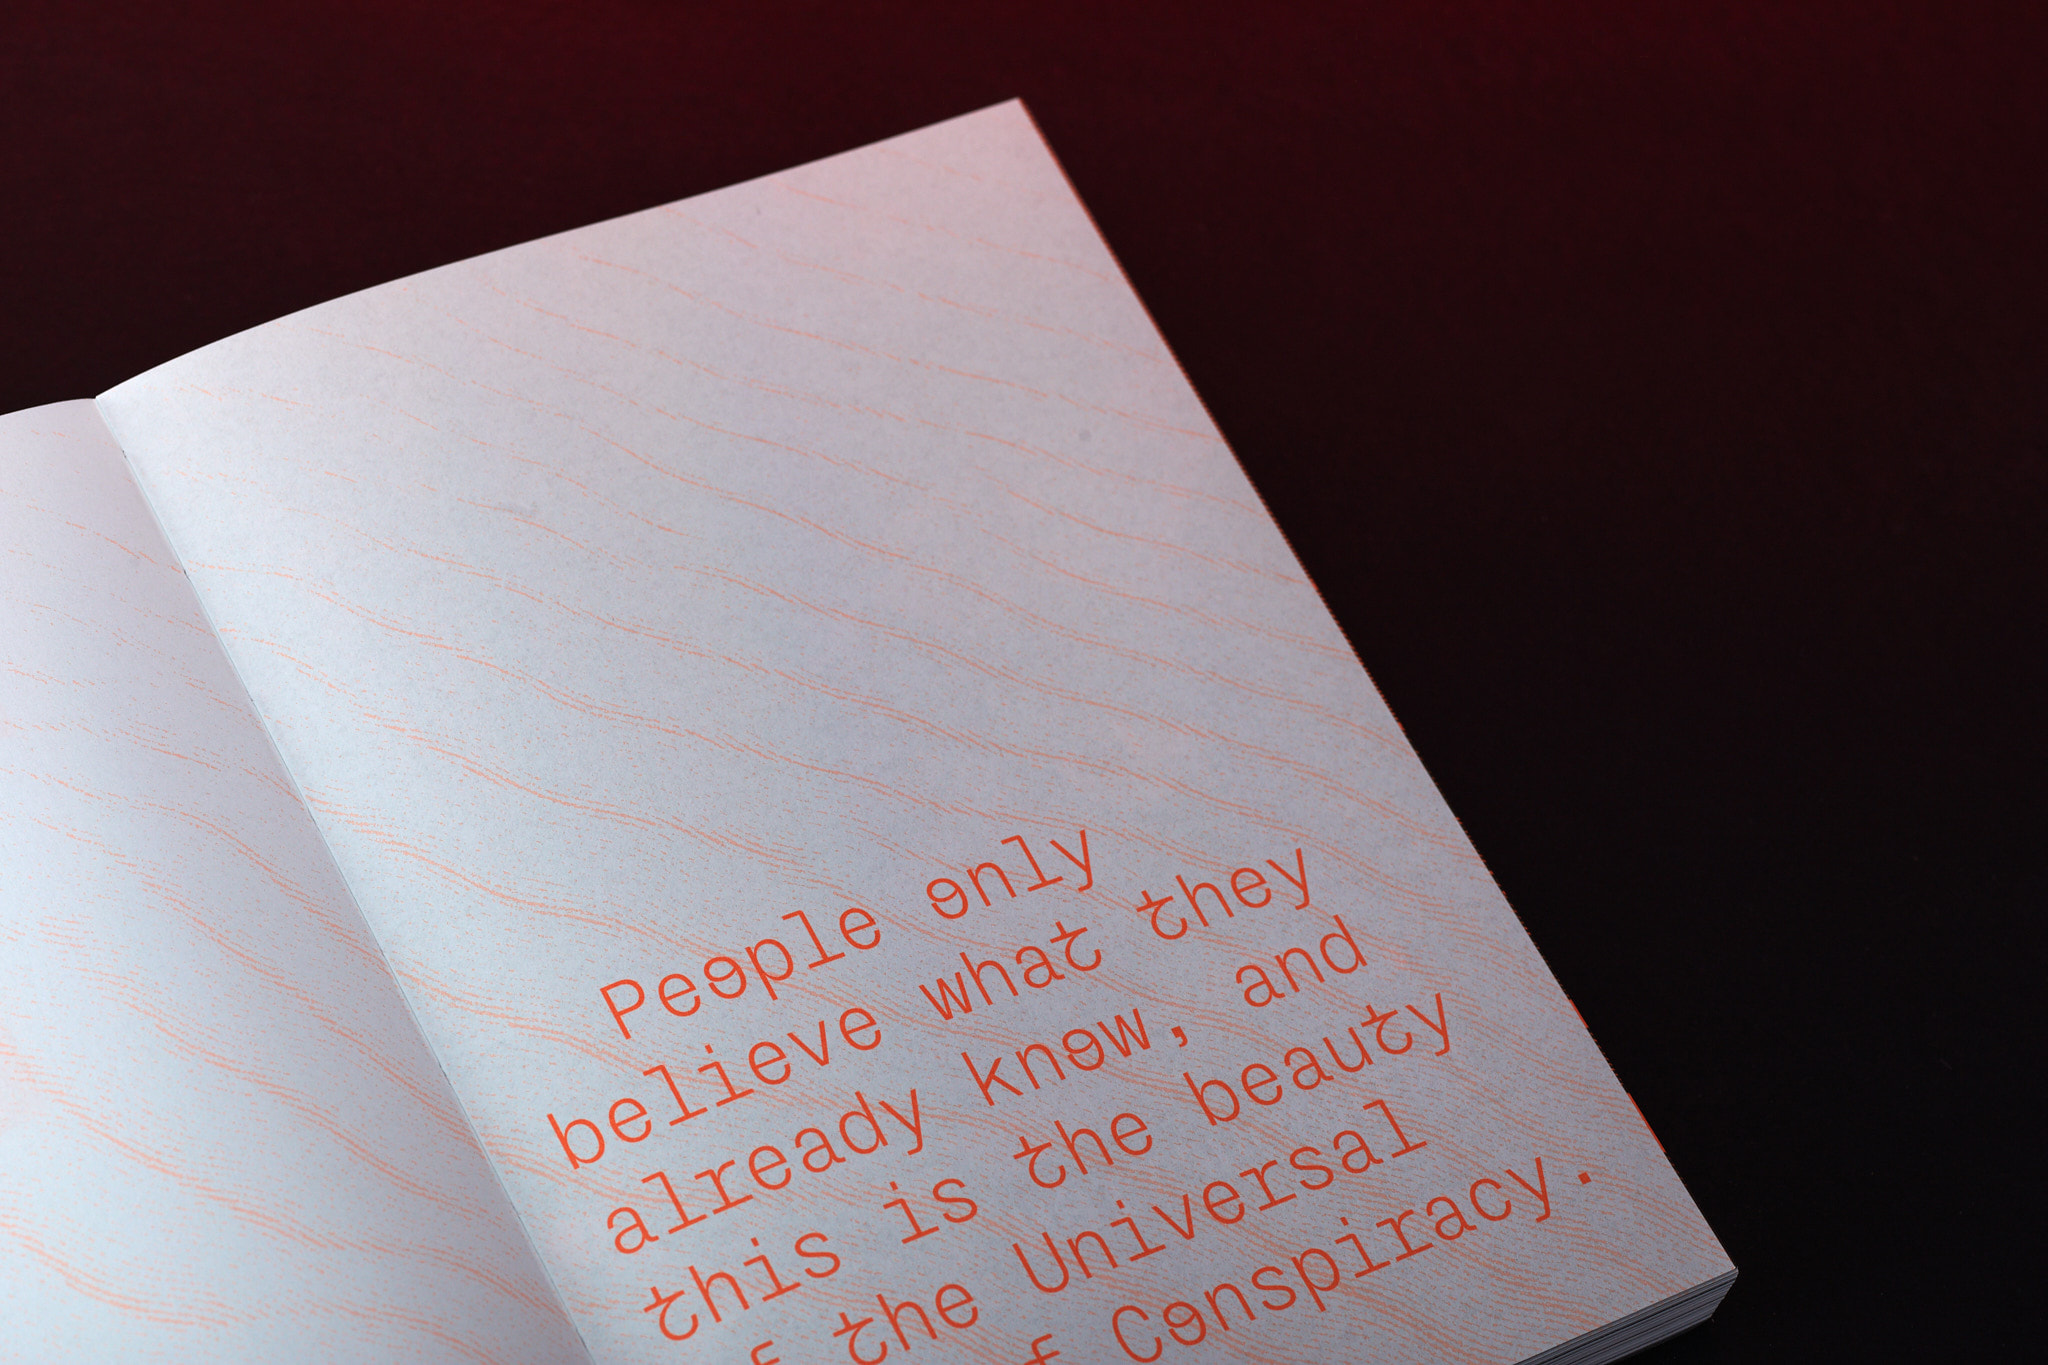 People only
believe what they
already know, and
this is the beauty
the Universal
Conspiracy.